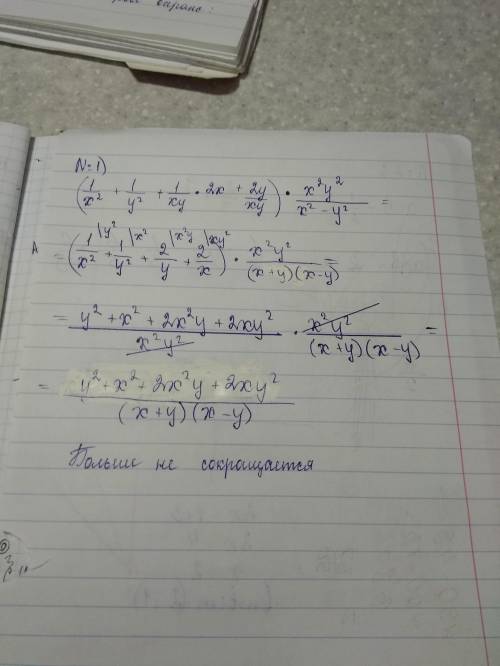 N=1)
(1/x² + 1/y² + 1/xy · 2x + 2y/xy) · x²y²/(x² - y²) =
= (1/x² \y² + 1/y² \x² + 2/y \x²y + 2/x \xy²) · x²y²/((x+y)(x-y)) =
= (y² + x² + 2x²y + 2xy²)/(x²y²) · x²y²/((x+y)(x-y)) =
= (y² + x² + 2x²y + 2xy²)/((x+y)(x-y))
Больше не сокращается